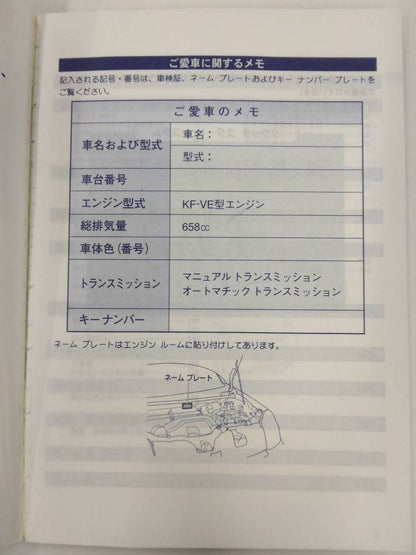 ご愛車に関するメモ
記入される記号・番号は、車検証、ネーム プレートおよびキー ナンバー プレートを
ご覧ください。
ご愛車のメモ
車名および型式
車名：
型式：
車台番号
エンジン型式 KF-VE型エンジン
総排気量 658cc
車体色（番号）
トランスミッション
マニュアル トランスミッション
オートマチック トランスミッション
キーナンバー
ネーム プレートはエンジン ルームに貼り付けしてあります。
ネーム プレート